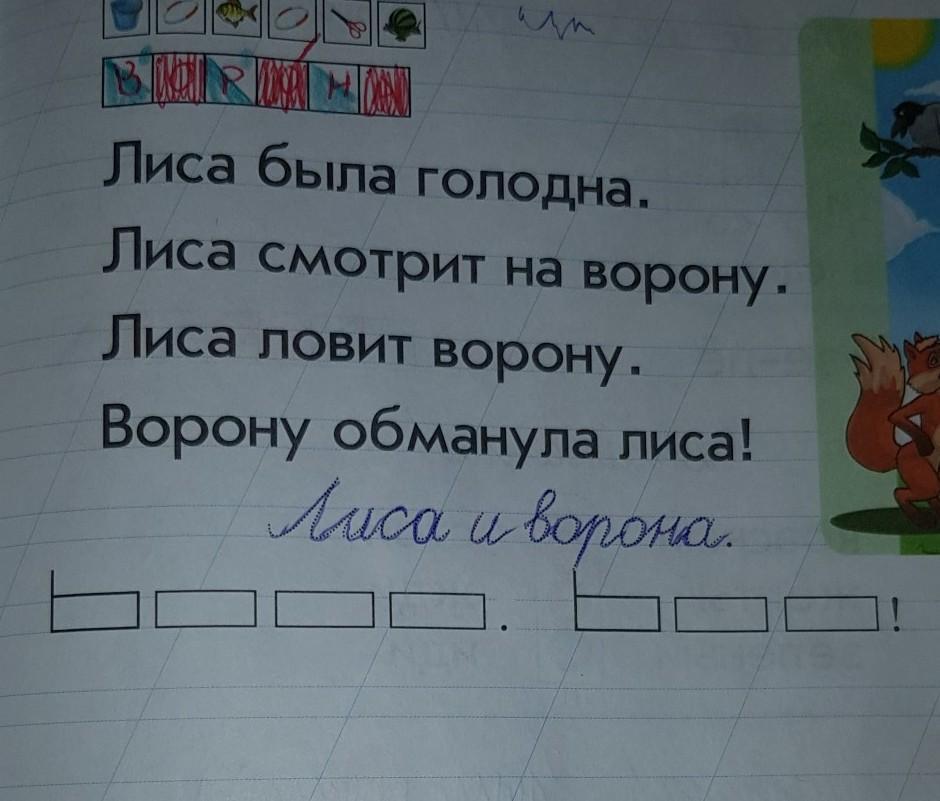 В Р Н
Лиса была голодна.
Лиса смотрит на ворону.
Лиса ловит ворону.
Ворону обманула лиса!
Лиса и ворона.
. !